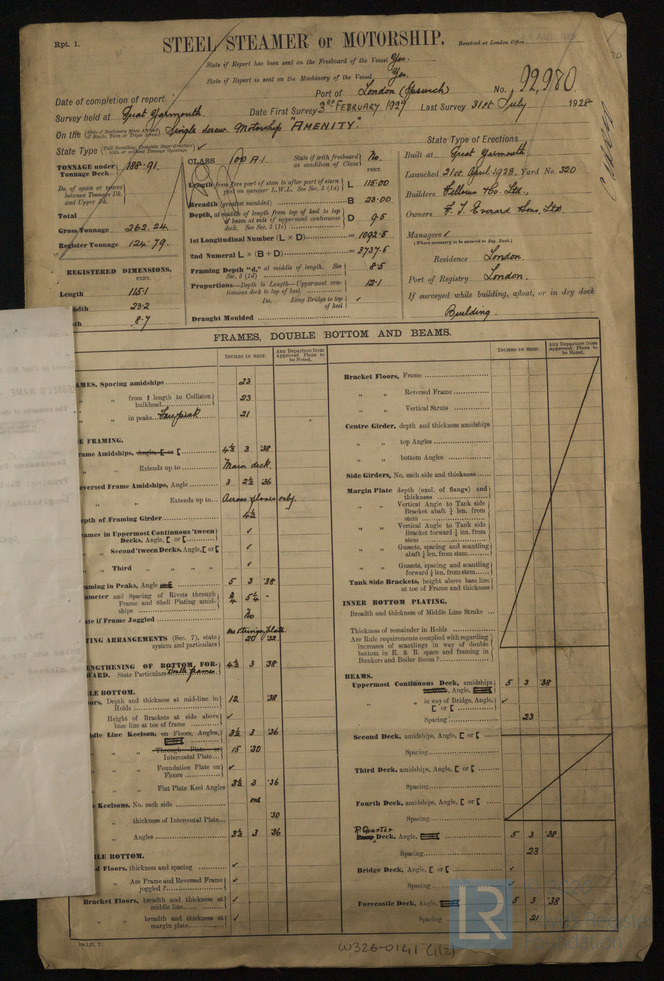 Rpt. 1.
STEEL STEAMER or MOTORSHIP.
Received at London Office
State if Report has been sent on the Freeboard of the Vessel Yes.
State if Report is sent on the Machinery of the Vessel Yes.
Date of completion of report
Port of London (Ipswich) No. 92980
Survey held at Great Yarmouth. Date First Survey 3RD FEBRUARY 1927 Last Survey 31st July 1928
On the Single screw Motorship "AMENITY".
State Type
State Type of Erections
TONNAGE under Tonnage Deck 188.91
Total
Gross Tonnage 262.24
Register Tonnage 124.79
REGISTERED DIMENSIONS.
FEET.
Length 115.1
23.2
8.7
CLASS 100 A1
State if with freeboard as condition of Class No.
FEET.
Length from fore part of stem to after part of stern post on summer L.W.L. See Sec. 3 (1a) L 115.00
Breadth (greatest moulded) B 23.00
Depth, at middle of length from top of keel to top of beam at side of uppermost continuous deck. See Sec. 3 (1c) D 9.5
1st Longitudinal Number (L × D) = 1092.5
2nd Numeral L × (B + D) = 3737.5
Framing Depth "d," at middle of length. See Sec. 3 (1d) 8.5
Proportions—Depth to Length—Uppermost continuous deck to top of keel 12.1
Do. Long Bridge to top of keel ✓
Draught Moulded
Built at Great Yarmouth
Launched 21st April 1928 Yard No. 320
Builders Fellows & Co. Ltd.
Owners F. T. Everard & Sons, Ltd.
Managers ✓
(Where necessary to be entered in Reg. Book.)
Residence London
Port of Registry London.
If surveyed while building, afloat, or in dry dock
Building.
FRAMES, DOUBLE BOTTOM AND BEAMS.
INCHES IN SHIP.
Any Departure from Approved Plans to be Noted.
INCHES IN SHIP.
Any Departure from Approved Plans to be Noted.
AMES, Spacing amidships 23
" " from ⅕ length to Collision bulkhead 23
" " in peaks 21
E FRAMING.
rame Amidships, Angle, [ or [ 4½ 3 .38
" " Extends up to Main deck
eversed Frame Amidships, Angle 3 2½ .36
" " Extends up to Across floors only.
epth of Framing Girder 4½
rames in Uppermost Continuous 'tween Decks, Angle, [ or [ ✓
" Second 'tween Decks, Angle, [ or [ ✓
" Third " " ✓
aming in Peaks, Angle 5 3 .38
ameter and Spacing of Rivets through Frame and Shell Plating amidships ¾ 5¼
ate if Frame Joggled No
TING ARRANGEMENTS (Sec. 7), state system and particulars
ENGTHENING OF BOTTOM FORWARD. State Particulars 4½ 3 .38
LE BOTTOM.
ors, Depth and thickness at mid-line in Holds 12 .38
Height of Brackets at side above base line at toe of frame ✓
ddle Line Keelson, on Floors, Angles, 3½ 3 .36
" " Through Plate or Intercostal Plate 15 .30
" " Foundation Plate on Floors ✓
" " Flat Plate Keel Angles 3½ 3 .36
Keelsons, No. each side one
" thickness of Intercostal Plate .30
" Angles 3½ 3 .36
LE BOTTOM.
d Floors, thickness and spacing ✓
" Are Frame and Reversed Frame joggled? ✓
Bracket Floors, breadth and thickness at middle line ✓
" " breadth and thickness at margin plate ✓
Bracket Floors, Frame
" " Reversed Frame
" " Vertical Struts
Centre Girder, depth and thickness amidships
" " top Angles
" " bottom Angles
Side Girders, No. each side and thickness
Margin Plate depth (excl. of flange) and thickness
" " Vertical Angle to Tank side Bracket abaft ¼ len. from stem
" " Vertical Angle to Tank side Bracket forward ¼ len. from stem
" " Gussets, spacing and scantling abaft ¼ len. from stem
" " Gussets, spacing and scantling forward ¼ len. from stem
Tank Side Brackets, height above base line at toe of Frame and thickness
INNER BOTTOM PLATING.
Breadth and thickness of Middle Line Strake
Thickness of remainder in Holds
Are Rule requirements complied with regarding increases of scantlings in way of double bottom in E. & B. space and framing in Bunkers and Boiler Room?
BEAMS.
Uppermost Continuous Deck, amidships, Angle, 5 3 .38
" " in way of Bridge, Angle, [ or [ ✓
Spacing 23
Second Deck, amidships, Angle, [ or [
Spacing
Third Deck, amidships, Angle, [ or [
Spacing
Fourth Deck, amidships, Angle, [ or [
Spacing
R. Quarter Deck, Angle, 5 3 .38
Spacing 23
Bridge Deck, Angle, [ or [ ✓
Spacing ✓
Forecastle Deck, Angle, 5 3 .38
Spacing 21
LR
Foundation
W326-0141 (1/2)